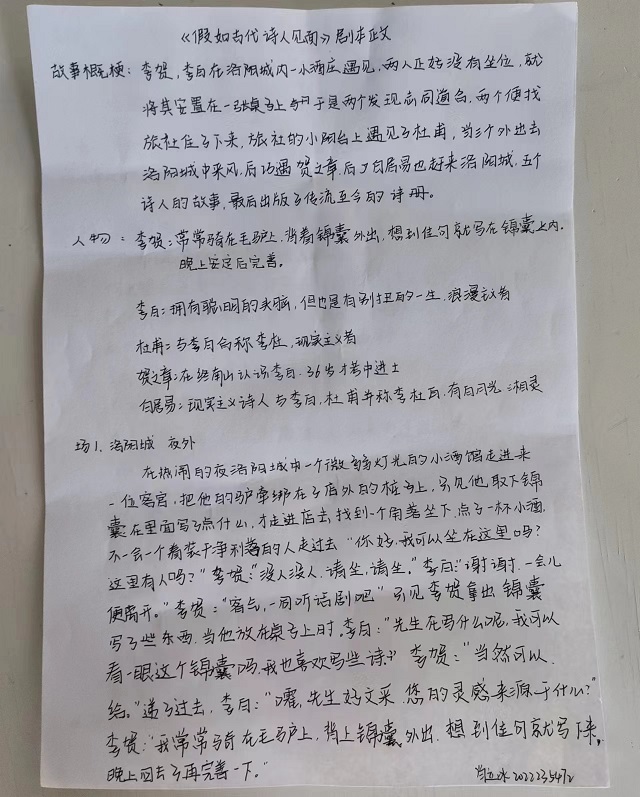 《假如古代诗人见面》剧本正文
故事概梗：李贺，李白在洛阳城内一小酒庄遇见，两人正好没有坐位，就
将其安置在一张桌子上 于是两个发现志同道合，两个便找
旅社住了下来，旅社的小阳台上遇见了杜甫，当3个外出去
洛阳城中采风，后巧遇贺文章，后白居易也赶来洛阳城，五个
诗人的故事，最后出版了传流至今的诗册。
人物：李贺：常常骑在毛驴上，背着锦囊外出，想到佳句就写在锦囊上内，
晚上安定后完善。
李白：拥有聪明的头脑，但也是有别扭的一生，浪漫主义者
杜甫：与李白合称李杜，现实主义者
贺文章：在终南山认识李白，36岁才考中进士
白居易：现实主义诗人与李白，杜甫并称李杜白，有白月光：湘灵
场1. 洛阳城 夜外
在热闹的夜洛阳城中一个微弱灯光的小酒馆走进来
一位客官，把他的驴牵绑在了店外的桩子上，只见他取下锦
囊在里面写了点什么，才走进店去，找到一个角落坐下，点了一杯小酒，
不一会一个着装干净利落的人走过去“你好，我可以坐在这里吗？
这里有人吗？”李贺：“没人没人，请坐，请坐。”李白：“谢谢，一会儿
便离开。”李贺：“客气，一同听话剧吧”只见李贺拿出锦囊
写了些东西，当他放在桌子上时，李白：“先生在写什么呢，我可以
看一眼这个锦囊吗，我也喜欢写些诗？”李贺：“当然可以，
给。”递了过去，李白：“嚯，先生好文采，您的灵感来源于什么？”
李贺：“我常常骑在毛驴上，背上锦囊外出，想到佳句就写下来，
晚上回去了再完善一下。”
2022235472